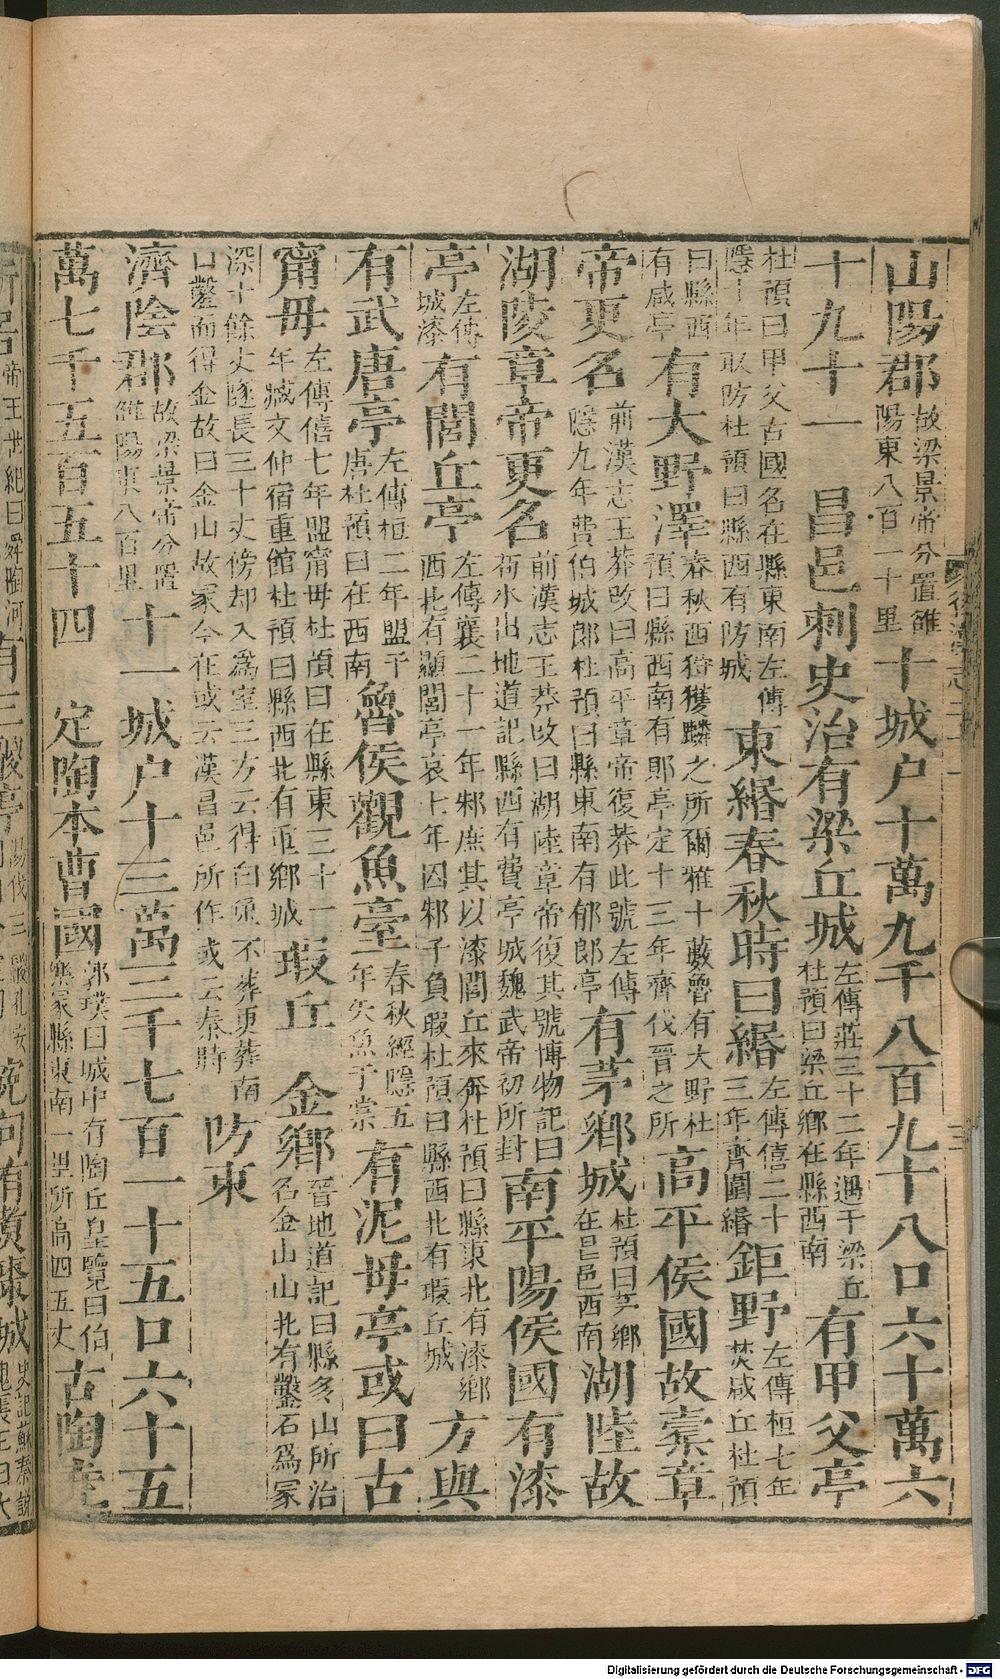 山陽郡故梁景帝分置雒陽東八百一十里十城户十萬九千八百九十八口六十萬六
十九十一　昌邑刺史治有梁丘城左傳莊三十二年遇于梁丘杜預曰梁丘鄉在縣西南有甲父亭
杜預曰甲父古國名在縣東南左傳隱十年取防杜預曰縣西有防城東緡春秋時曰緡左傳僖二十三年齊圍緡鉅野左傳桓七年焚咸丘杜預
曰縣西有咸亭有大野澤春秋西狩獲麟之所爾雅十藪魯有大野杜預曰縣西南有郥亭定十三年齊伐晉之所高平侯國故橐章
帝更名前漢志王莽改曰高平章帝復莽此號左傳隱九年費伯城郎杜預曰縣東南有郁郎亭有茅鄉城杜預曰茅鄉在昌邑西南湖陸故
湖陵章帝更名前漢志王莽改曰湖陸章帝復其號博物記曰苟水出地道記縣西有費亭城魏武帝初所封南平陽侯國有漆
亭左傳城漆有閭丘亭左傳襄二十一年邾庶其以漆閭丘來奔杜預曰縣東北有漆鄉西北有顯閭亭哀七年囚邾子負瑕杜預曰縣西北有瑕丘城方與
有武唐亭左傳桓二年盟于唐杜預曰在西南魯侯觀魚臺春秋經隱五年矢魚于棠有泥毋亭或曰古
甯毋左傳僖七年盟甯毋杜預曰在縣東三十一年臧文仲宿重館杜預曰縣西北有重鄉城瑕丘　金鄉晉地道記曰縣多山所治名金山山北有鑿石爲冢
深十餘丈隧長三十丈傍却入爲室三方云得白兔不葬更葬南口鑿而得金故曰金山故冢今在或云漢昌邑所作或云秦時防東
濟陰郡故梁景帝分置雒陽東八百里十一城户十三萬三千七百一十五口六十五
萬七千五百五十四　定陶本曹國郭璞曰城中有陶丘皇覽曰伯樂冢縣東南一里所高四五丈古陶堯
Digitalisierung gefördert durch die Deutsche Forschungsgemeinschaft - DFG